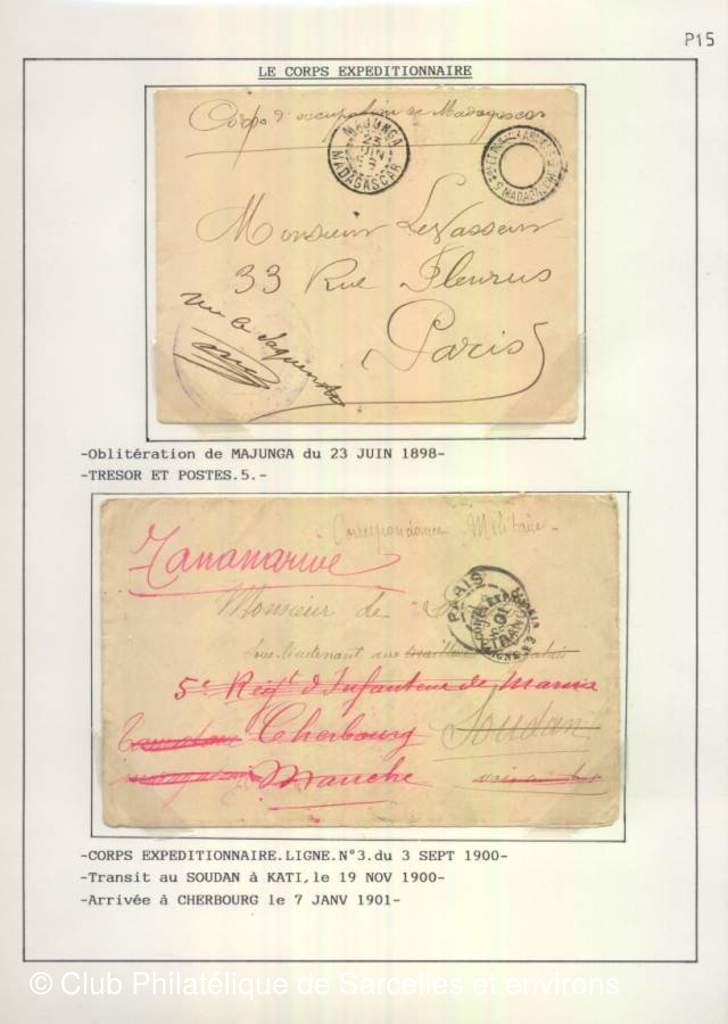 P15
LE CORPS EXPEDITIONNAIRE
Corps d'occupation de Madagascar
MAJUNGA
23
JUIN
MADAGASCAR
Monsieur LeVasseur
33 Rue Fleurus
Paris
-Oblitération de MAJUNGA du 23 JUIN 1898-
-TRESOR ET POSTES.5.-
Correspondance Militaire
Tananarive
Monsieur de
PARIS
LIGNE N°3
Sous-lieutenant aux
5e Régt d'Infanterie de Marine
Cherbourg
Soudan
Manche
-CORPS EXPEDITIONNAIRE.LIGNE.N°3.du 3 SEPT 1900-
-Transit au SOUDAN à KATI,le 19 NOV 1900-
-Arrivée à CHERBOURG le 7 JANV 1901-
© Club Philatélique de Sarcelles et environs